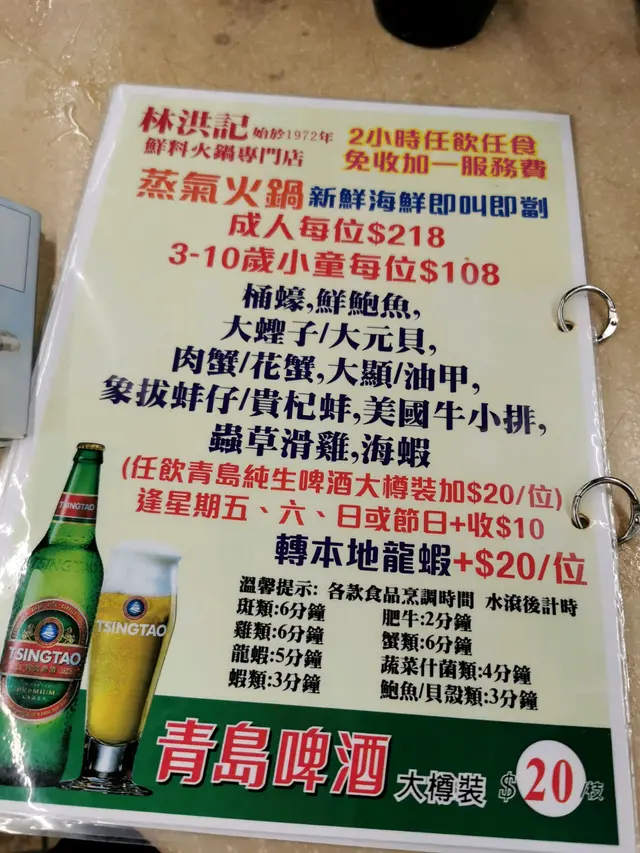 林洪記 始於1972年
鮮料火鍋專門店
2小時任飲任食
免收加一服務費
蒸氣火鍋 新鮮海鮮即叫即劏
成人每位$218
3-10歲小童每位$108
桶蠔,鮮鮑魚,
大蟶子/大元貝,
肉蟹/花蟹,大顯/油甲,
象拔蚌仔/貴杞蚌,美國牛小排,
蟲草滑雞,海蝦
(任飲青島純生啤酒大樽裝加$20/位)
逢星期五、六、日或節日+收$10
轉本地龍蝦+$20/位
溫馨提示: 各款食品烹調時間 水滾後計時
斑類:6分鐘 肥牛:2分鐘
雞類:6分鐘 蟹類:6分鐘
龍蝦:5分鐘 蔬菜什菌類:4分鐘
蝦類:3分鐘 鮑魚/貝殼類:3分鐘
TSINGTAO
TSINGTAO
PREMIUM
TSINGTAO
青島啤酒 大樽裝 $20/枝